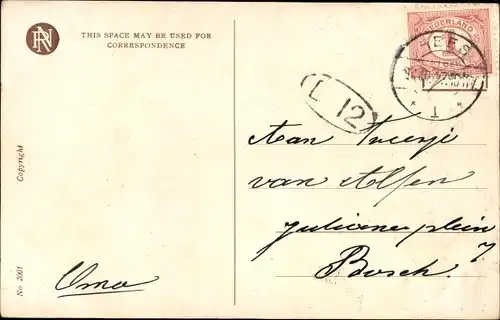 THIS SPACE MAY BE USED FOR
CORRESPONDENCE
Copyright
No 3001
Oma
NEDERLAND
L 12
Aan Truusje
van Alfen
Julianaplein 7
Bosch.